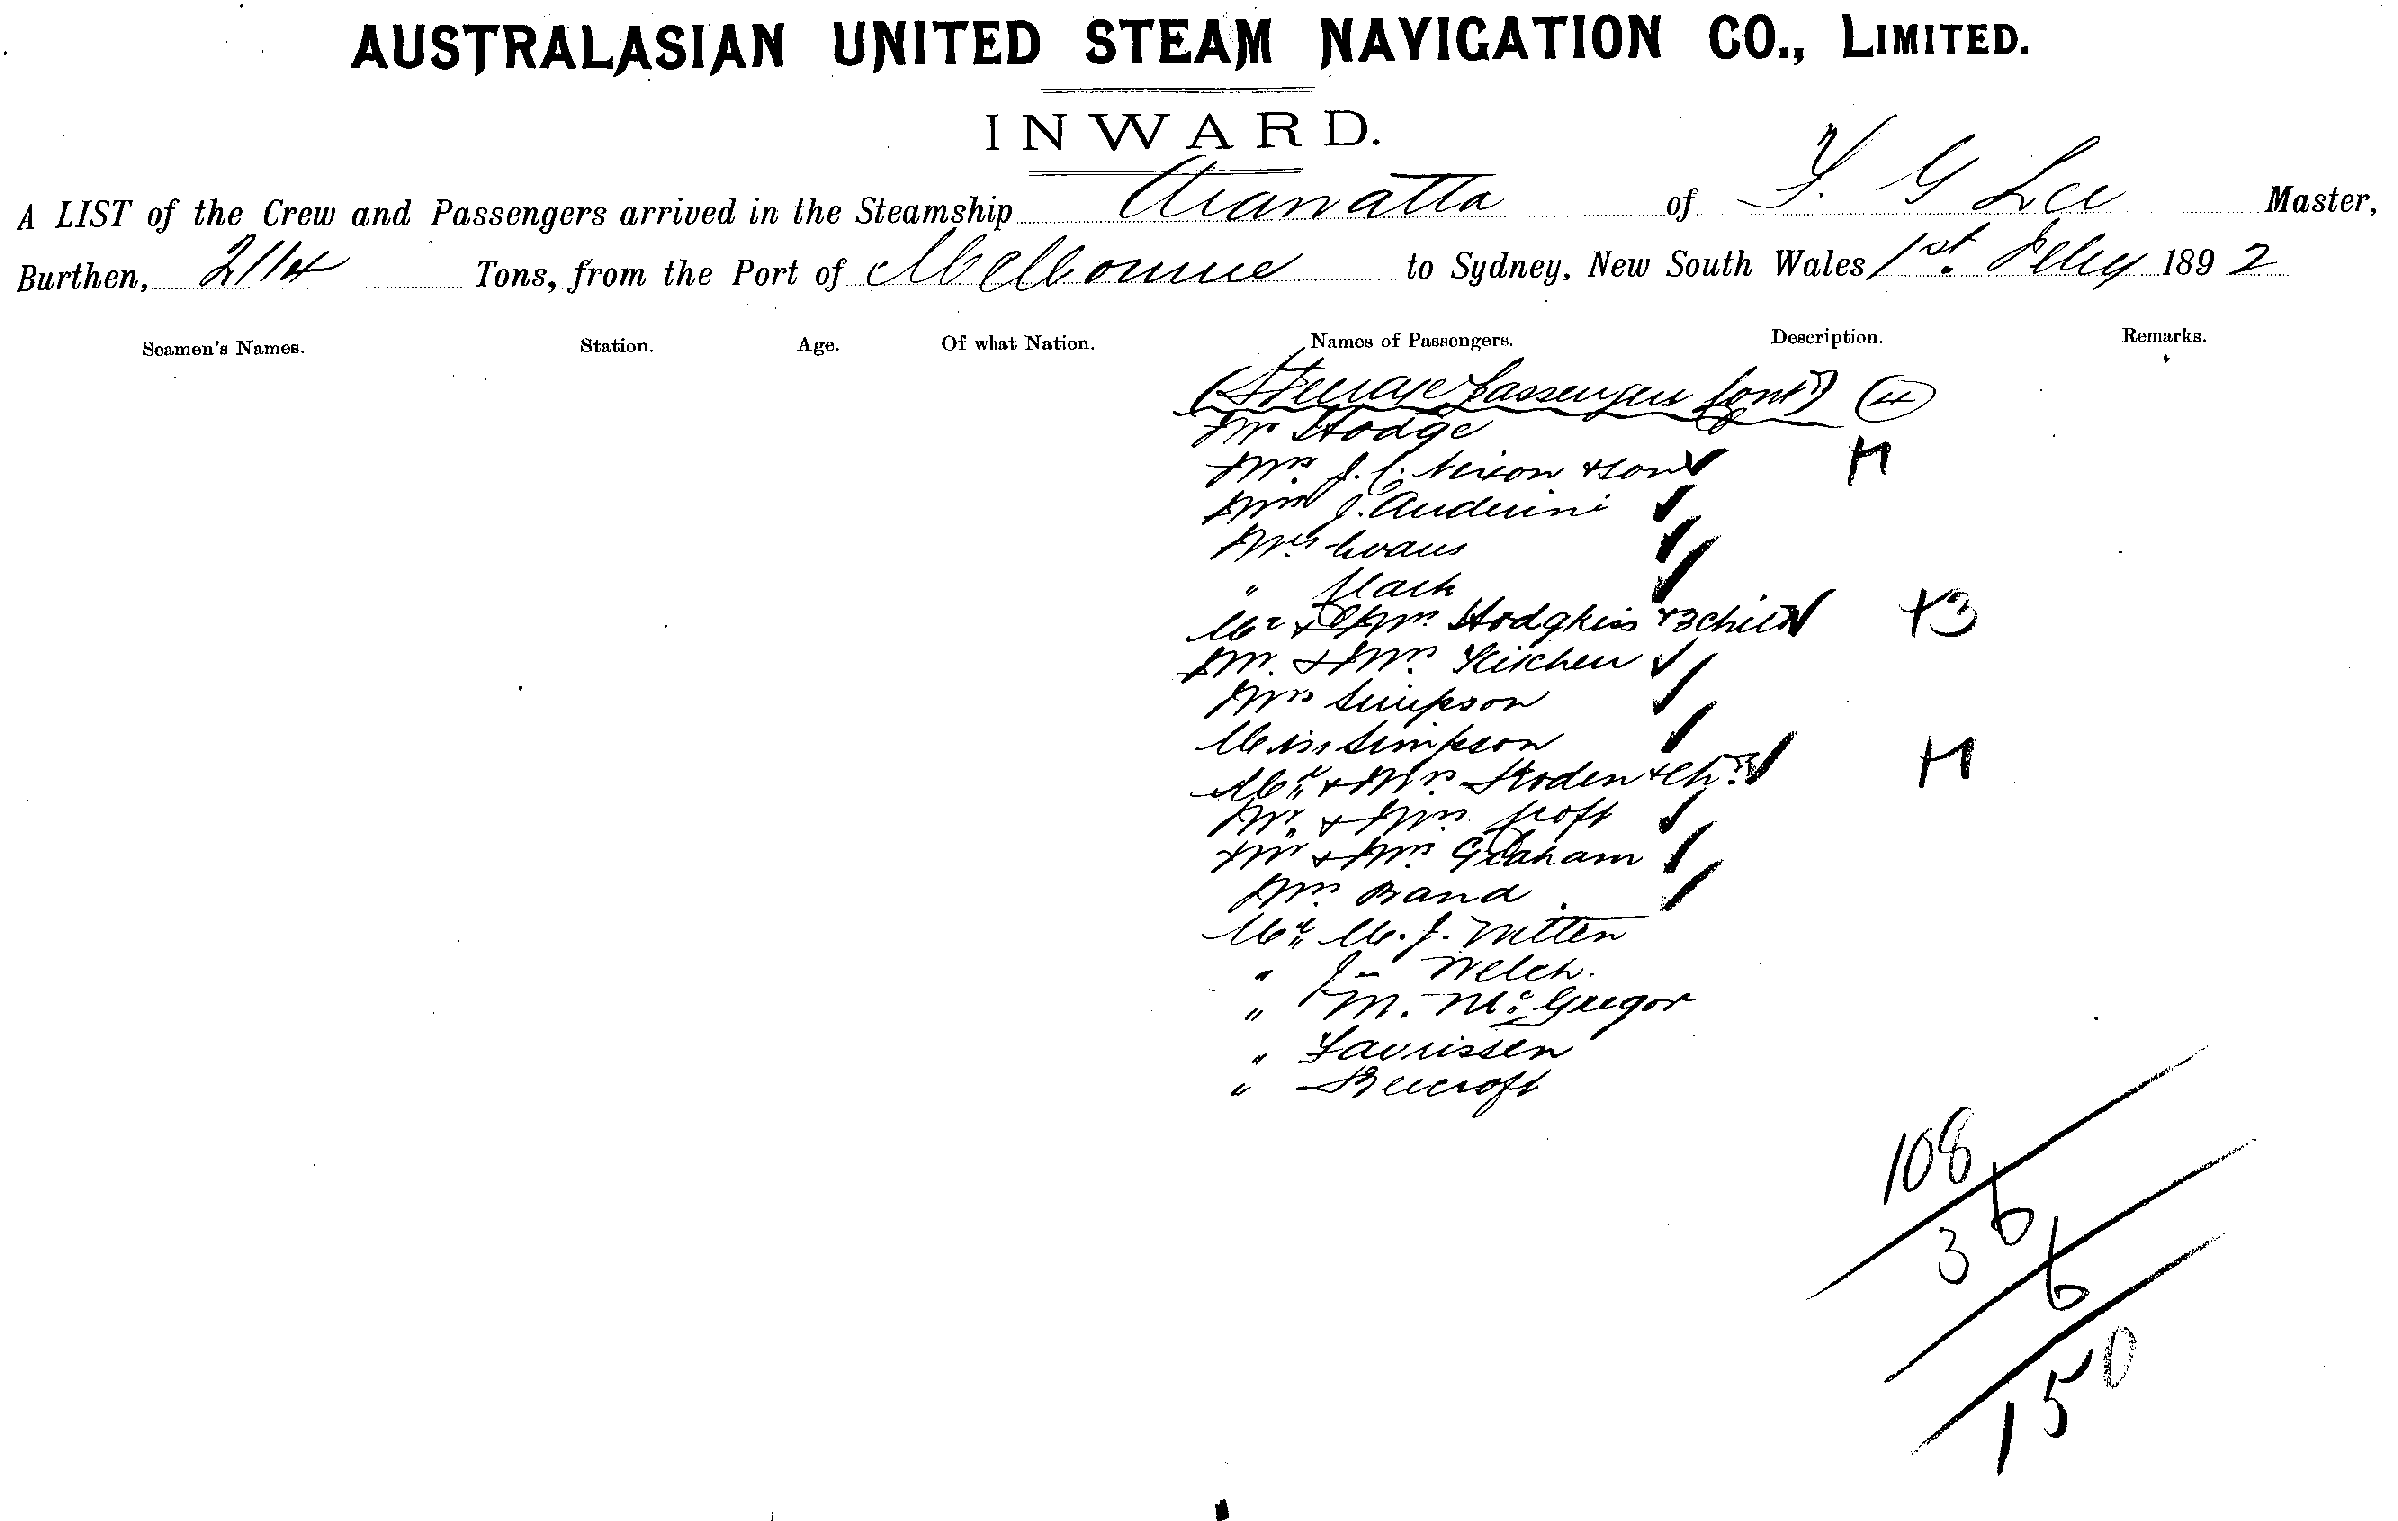 AUSTRALASIAN UNITED STEAM NAVIGATION CO., LIMITED.
INWARD.
A LIST of the Crew and Passengers arrived in the Steamship Arawatta of G Lee Master,
Burthen, 2114 Tons, from the Port of Melbourne to Sydney, New South Wales 1st. Feby 1892
Seamen's Names. Station. Age. Of what Nation. Names of Passengers. Description. Remarks.
(Steerage Passengers Contd) 4
Mr Hodge
Mrs J. C. Nixon + son
J. Anderini
Mrs Evans
"
Mr + Mrs. Hodgkiss + 3 child +3
Mr. + Mrs. Kitchen
Mrs Simpson
Miss Simpson
Mr + Mrs. Roden + Ch. +1
Mr. + Mrs. Croft
Mr + Mrs. Graham
Mrs. Brand
Mr M. J. Mitten
" J Welch.
" M. McGregor
" Laurissen
" Beecroft
108
36
6
150